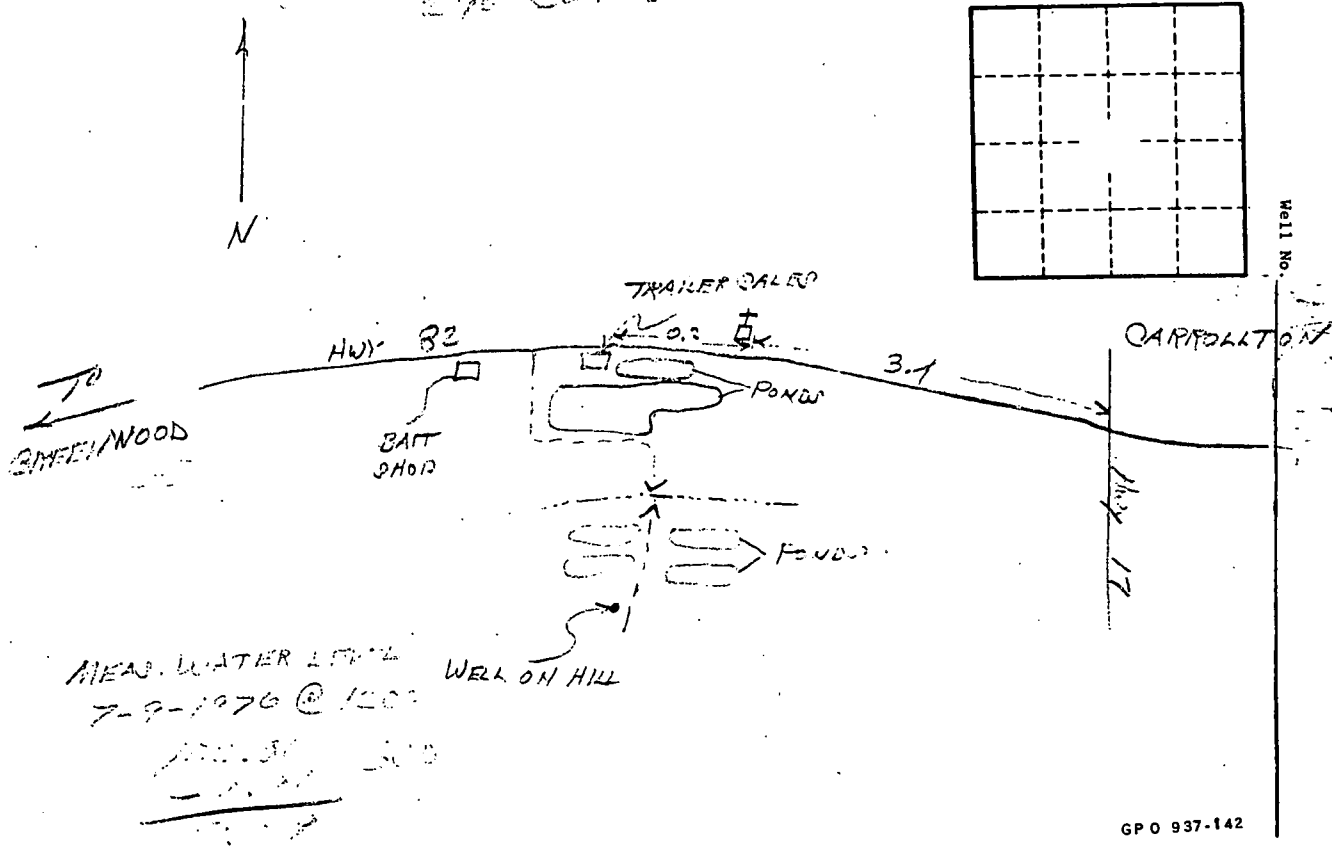 N
Well No.
TRAILER SALES
HWY 82
0.2
3.1
CARROLLTON
TO
GREENWOOD
BAIT
SHOP
PONDS
Hwy 17
PONDS
WELL ON HILL
MEAS. WATER LEVEL
7-9-1976 @
GPO 937-142